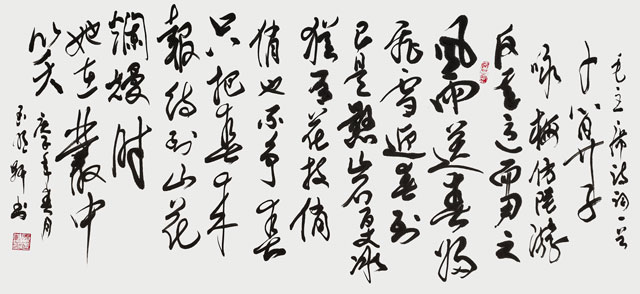 毛主席诗词一首
卜算子
咏梅仿陆游
反其意而用之
風雨送春归
飛雪迎春到
已是懸岩百丈冰
猶有花枝俏
俏也不争春
只把春来
報待到山花
爛熳时
她在叢中
笑
庚子年春月
轩书